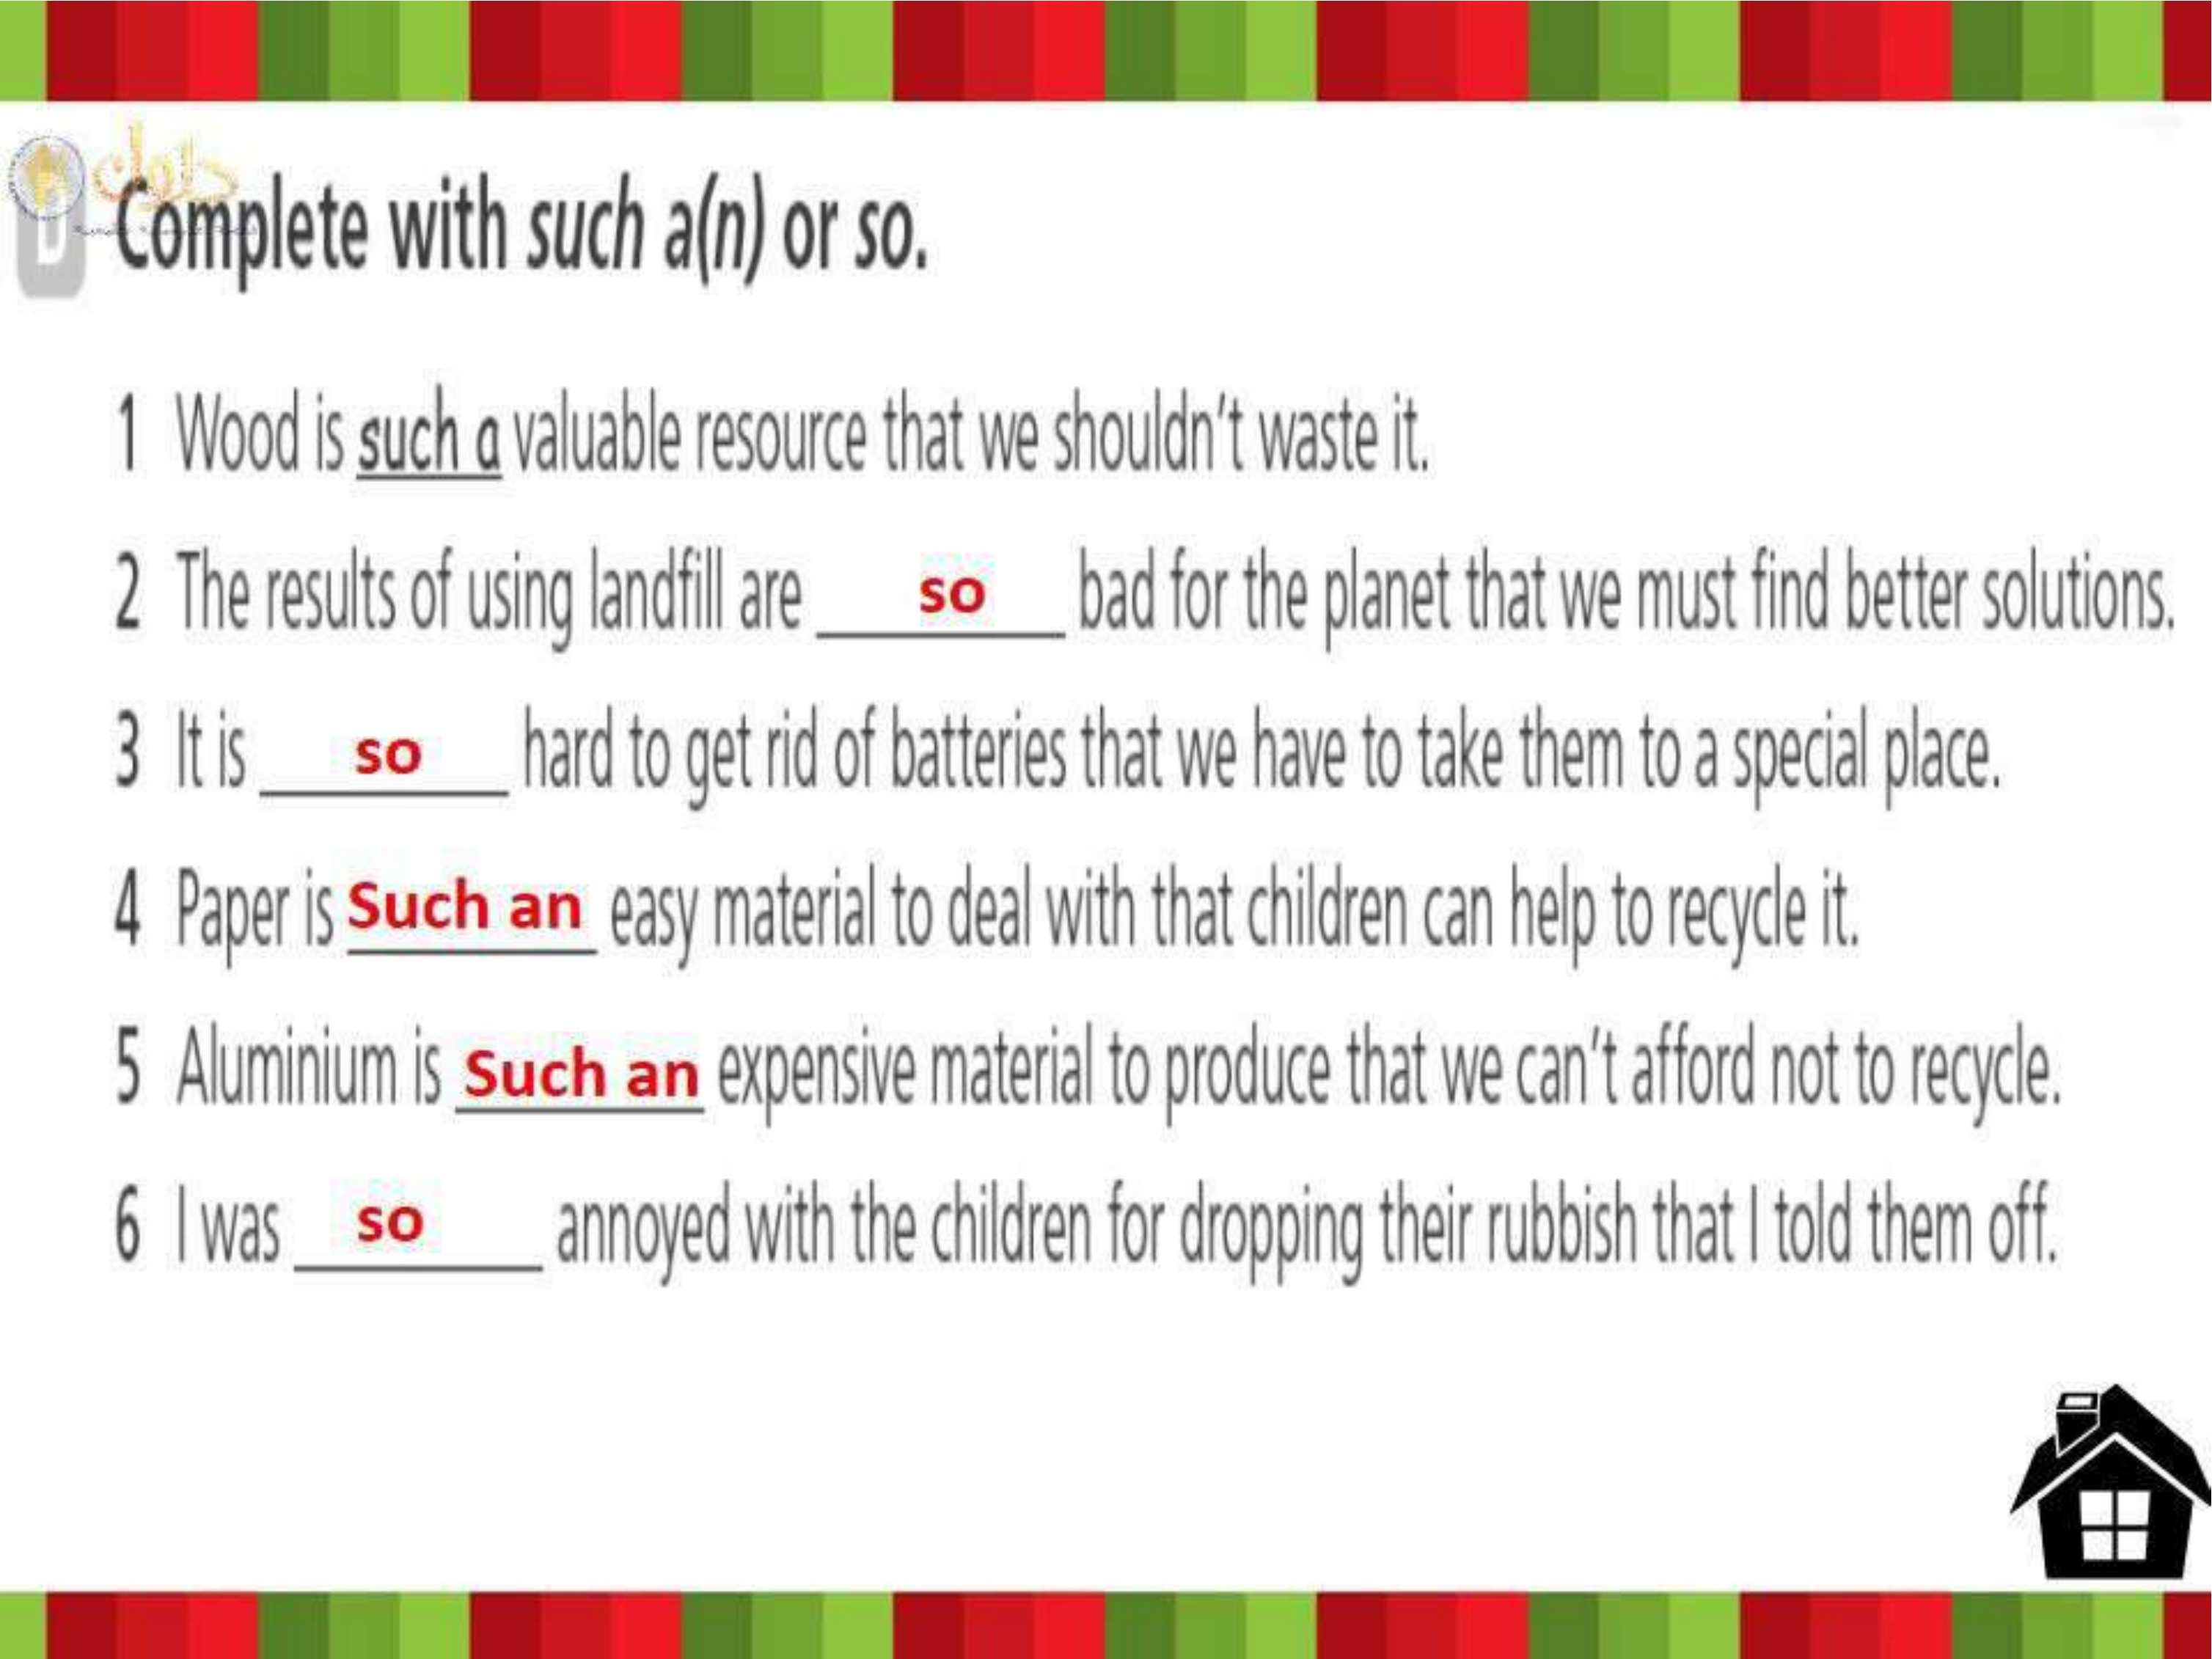 حلول
D Complete with such a(n) or so.
1 Wood is such a valuable resource that we shouldn't waste it.
2 The results of using landfill are so bad for the planet that we must find better solutions.
3 It is so hard to get rid of batteries that we have to take them to a special place.
4 Paper is Such an easy material to deal with that children can help to recycle it.
5 Aluminium is Such an expensive material to produce that we can't afford not to recycle.
6 I was so annoyed with the children for dropping their rubbish that I told them off.